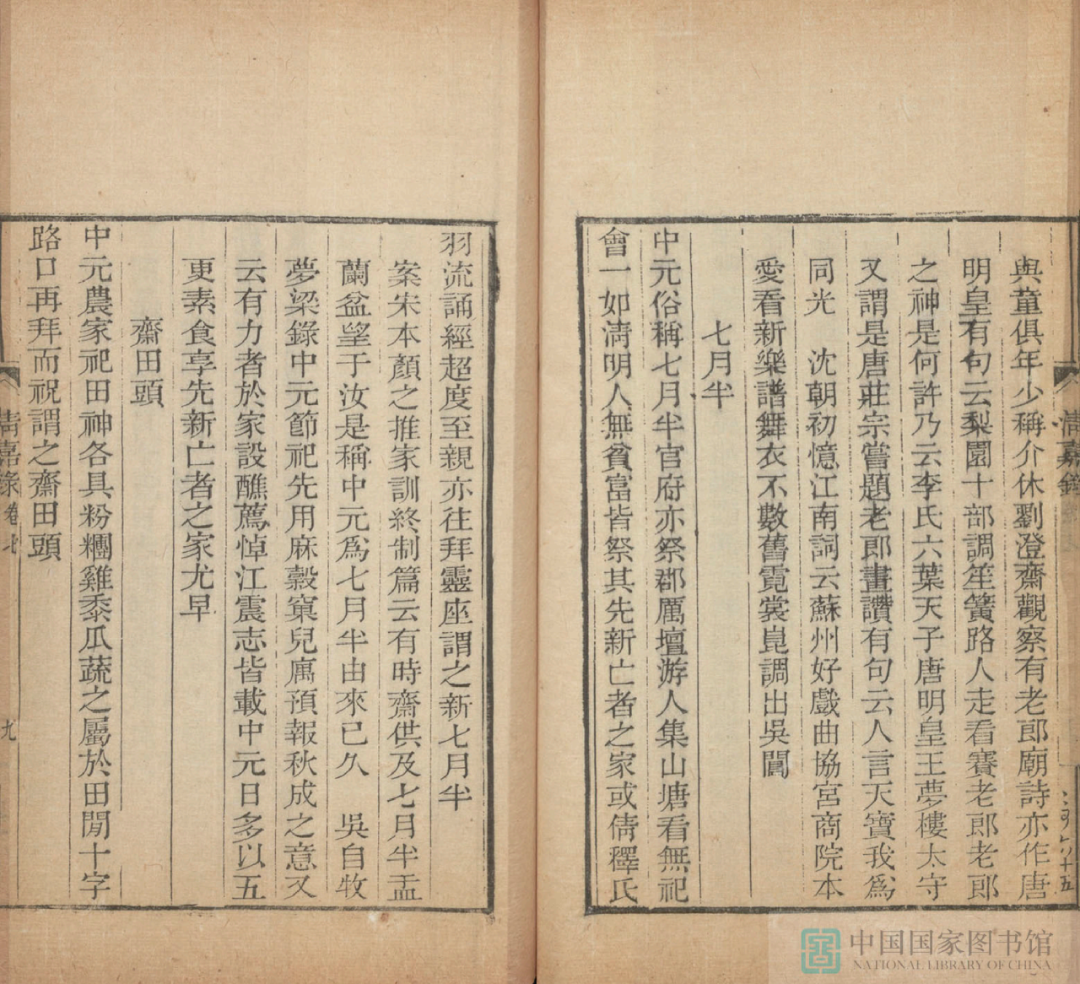 與童俱年少稱介休劉澄齋觀察有老郎廟詩亦作唐
明皇有句云梨園十部調笙簧路人走看賽老郎老郎
之神是何許乃云李氏六葉天子唐明皇王夢樓太守
又謂是唐莊宗嘗題老郎畫讚有句云人言天寶我爲
同光 沈朝初憶江南詞云蘇州好戲曲協宮商院本
愛看新樂譜舞衣不數舊霓裳崑調出吳閶
七月半
中元俗稱七月半官府亦祭郡厲壇游人集山塘看無祀
會一如淸明人無貧富皆祭其先新亡者之家或倩釋氏
羽流誦經超度至親亦往拜靈座謂之新七月半
案宋本顏之推家訓終制篇云有時齋供及七月半盂
蘭盆望于汝是稱中元爲七月半由來已久 吳自牧
夢梁錄中元節祀先用麻穀窠兒寓預報秋成之意又
云有力者於家設醮薦悼江震志皆載中元日多以五
更素食享先新亡者之家尤早
齋田頭
中元農家祀田神各具粉糰雞黍瓜蔬之屬於田閒十字
路口再拜而祝謂之齋田頭
淸嘉錄 卷七
九
中国国家图书馆
NATIONAL LIBRARY OF CHINA